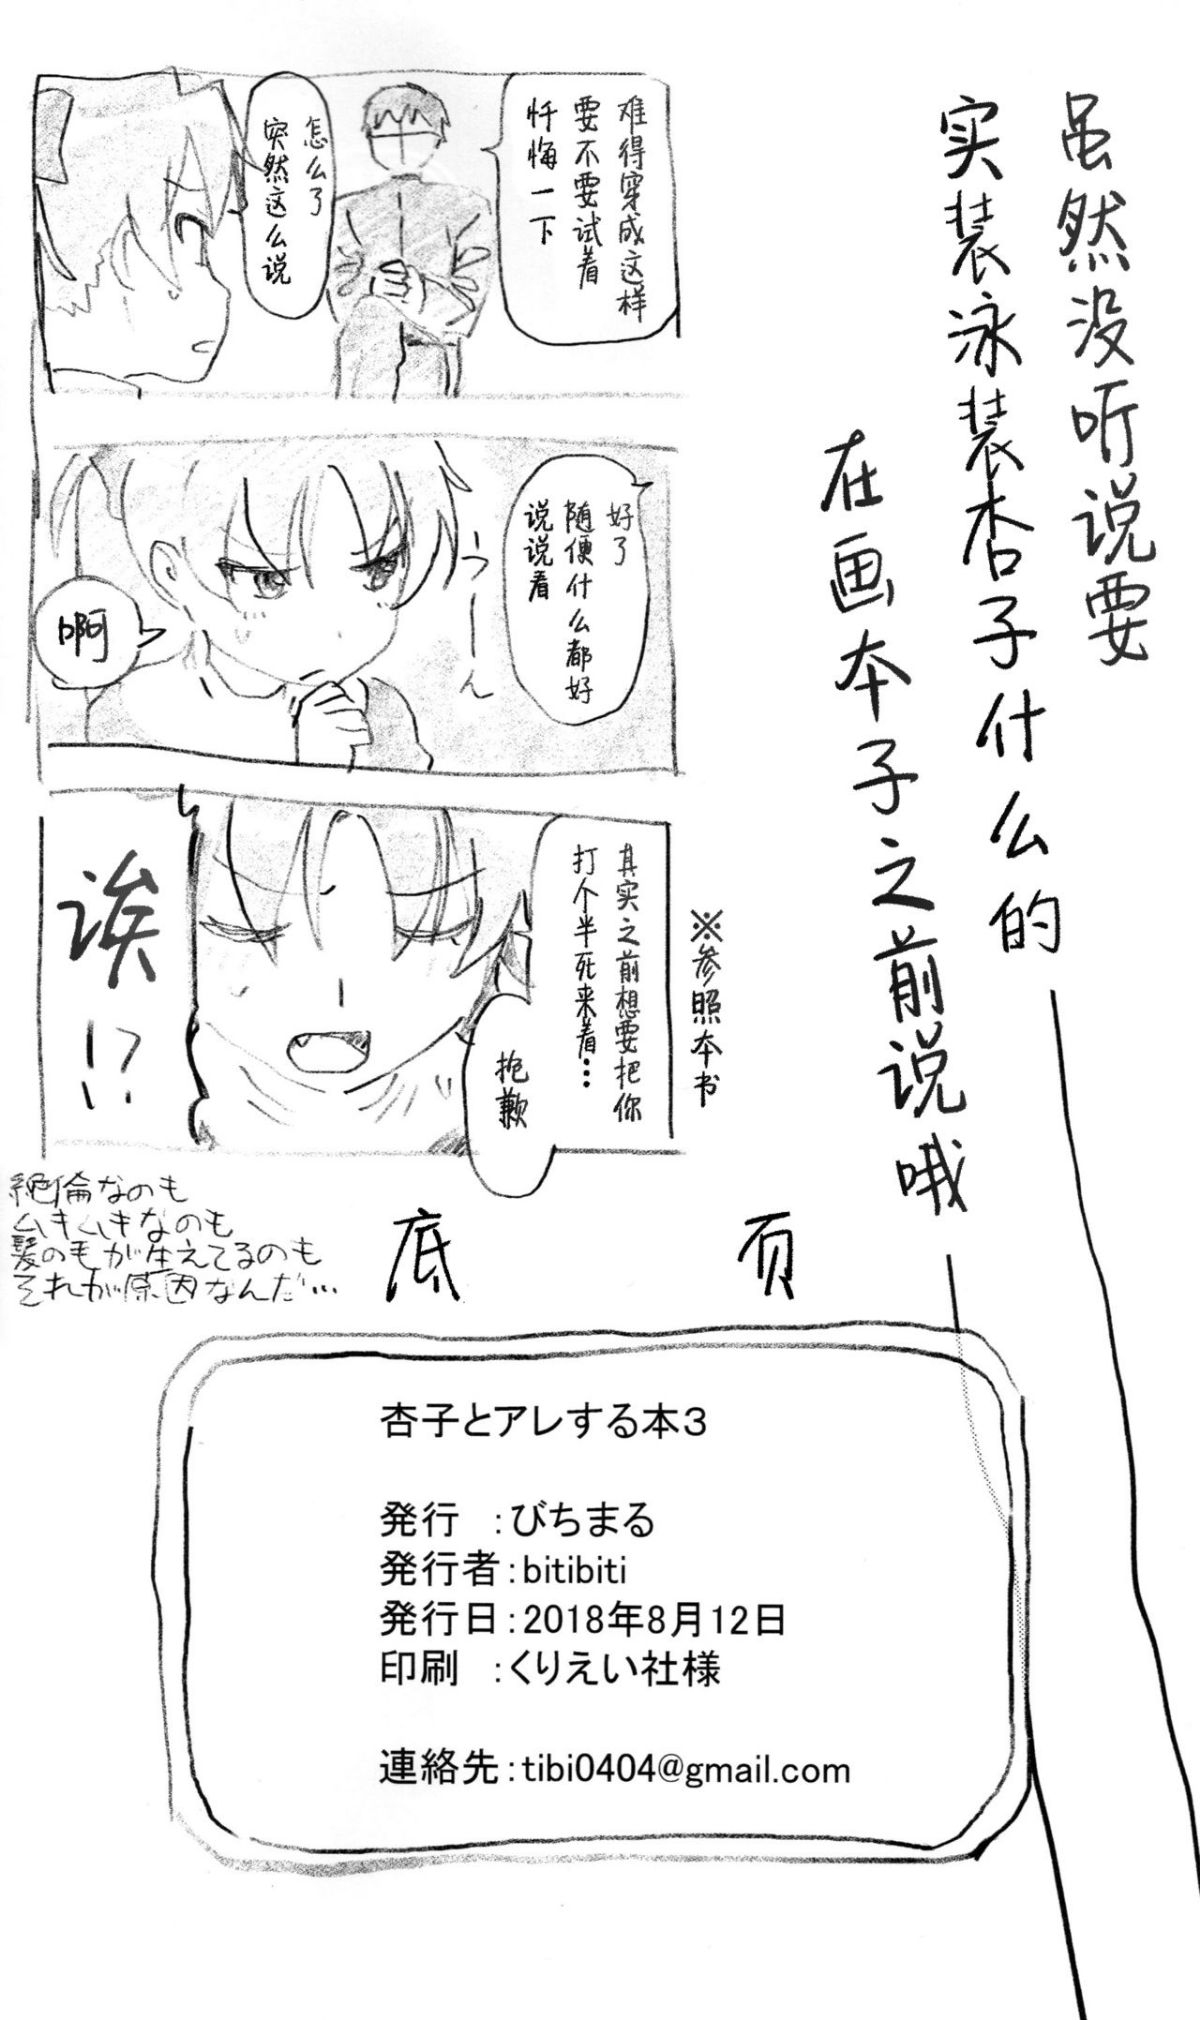 虽然没听说要
实装泳装杏子什么的
在画本子之前说哦
难得穿成这样
要不要试着
忏悔一下
怎么了
突然这么说
好了
随便什么都好
说说看
うーん
啊
※参照本书
其实之前想要把你
打个半死来着…
抱歉
诶!?
絶倫なのも
ムキムキなのも
髪の毛が生えてるのも
それが原因なんだ…
底 页
杏子とアレする本3
発行 :びちまる
発行者:bitibiti
発行日:2018年8月12日
印刷 :くりえい社様
連絡先:tibi0404@gmail.com